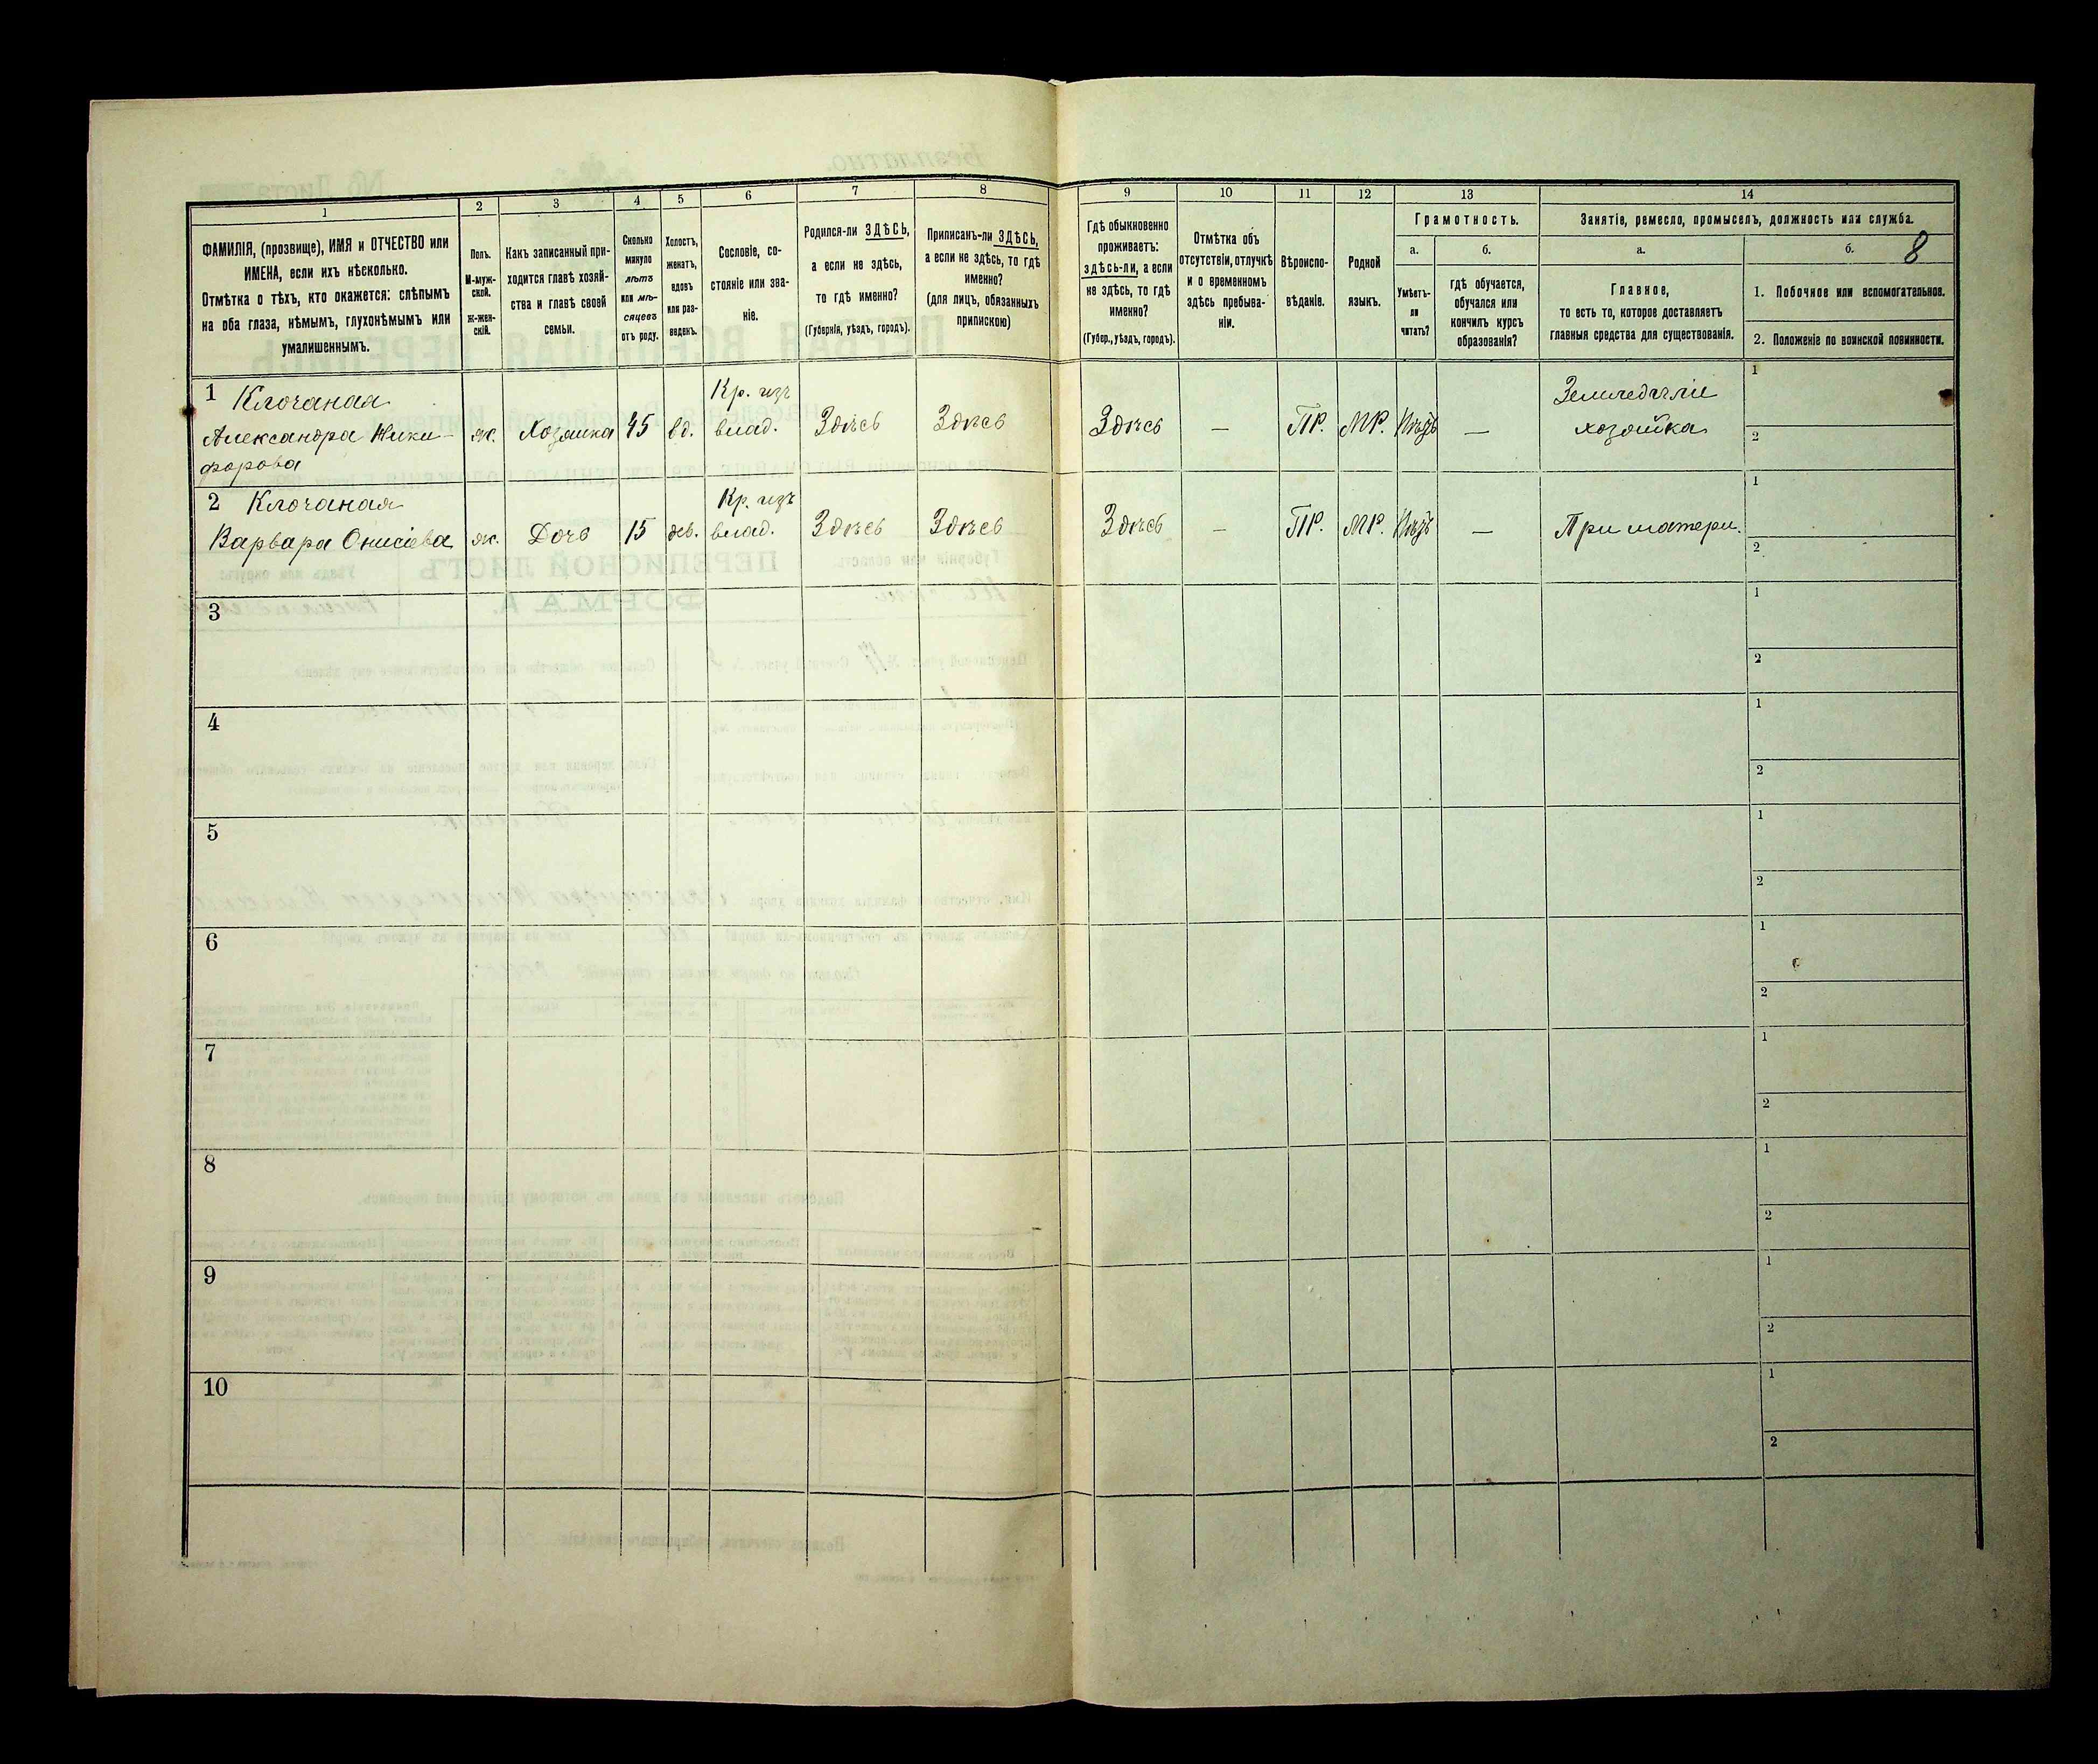 1
2
3
4
5
6
7
8
9
10
11
12
13
14
ФАМИЛІЯ, (прозвище), ИМЯ и ОТЧЕСТВО или
ИМЕНА, если ихъ нѣсколько.
Отмѣтка о тѣхъ, кто окажется: слѣпымъ
на оба глаза, нѣмымъ, глухонѣмымъ или
умалишеннымъ.
Полъ.
М-муж-
ской.
Ж-жен-
скій.
Какъ записанный при-
ходится главѣ хозяй-
ства и главѣ своей
семьи.
Сколько
минуло
лѣтъ
или мѣ-
сяцевъ
отъ роду.
Холостъ,
женатъ,
вдовъ
или раз-
веденъ.
Сословіе, со-
стояніе или зва-
ніе.
Родился-ли ЗДѢСЬ,
а если не здѣсь,
то гдѣ именно?
(Губернія, уѣздъ, городъ).
Приписанъ-ли ЗДѢСЬ,
а если не здѣсь, то гдѣ
именно?
(для лицъ, обязанныхъ
припискою)
Гдѣ обыкновенно
проживаетъ:
здѣсь-ли, а если
не здѣсь, то гдѣ
именно?
(Губер., уѣздъ, городъ).
Отмѣтка объ
отсутствіи, отлучкѣ
и о временномъ
здѣсь пребыва-
ніи.
Вѣроиспо-
вѣданіе.
Родной
языкъ.
Грамотность.
а.
Умѣетъ-
ли
читать?
б.
гдѣ обучается,
обучался или
кончилъ курсъ
образованія?
Занятіе, ремесло, промыселъ, должность или служба.
а.
Главное,
то есть то, которое доставляетъ
главныя средства для существованія.
б.
8
1. Побочное или вспомогательное.
2. Положеніе по воинской повинности.
1 Клочаная
Александра Ники-
форова
ж.
Хозяйка
45
вд.
Кр. изъ
влад.
Здѣсь
Здѣсь
Здѣсь
—
ПР.
МР.
Нѣтъ
—
Земледѣліе
хозяйка
1
2
2 Клочаная
Варвара Онисіева
ж.
Дочь
15
дѣв.
Кр. изъ
влад.
Здѣсь
Здѣсь
Здѣсь
—
ПР.
МР.
Нѣтъ
—
При матери.
1
2
3
1
2
4
1
2
5
1
2
6
1
2
7
1
2
8
1
2
9
1
2
10
1
2